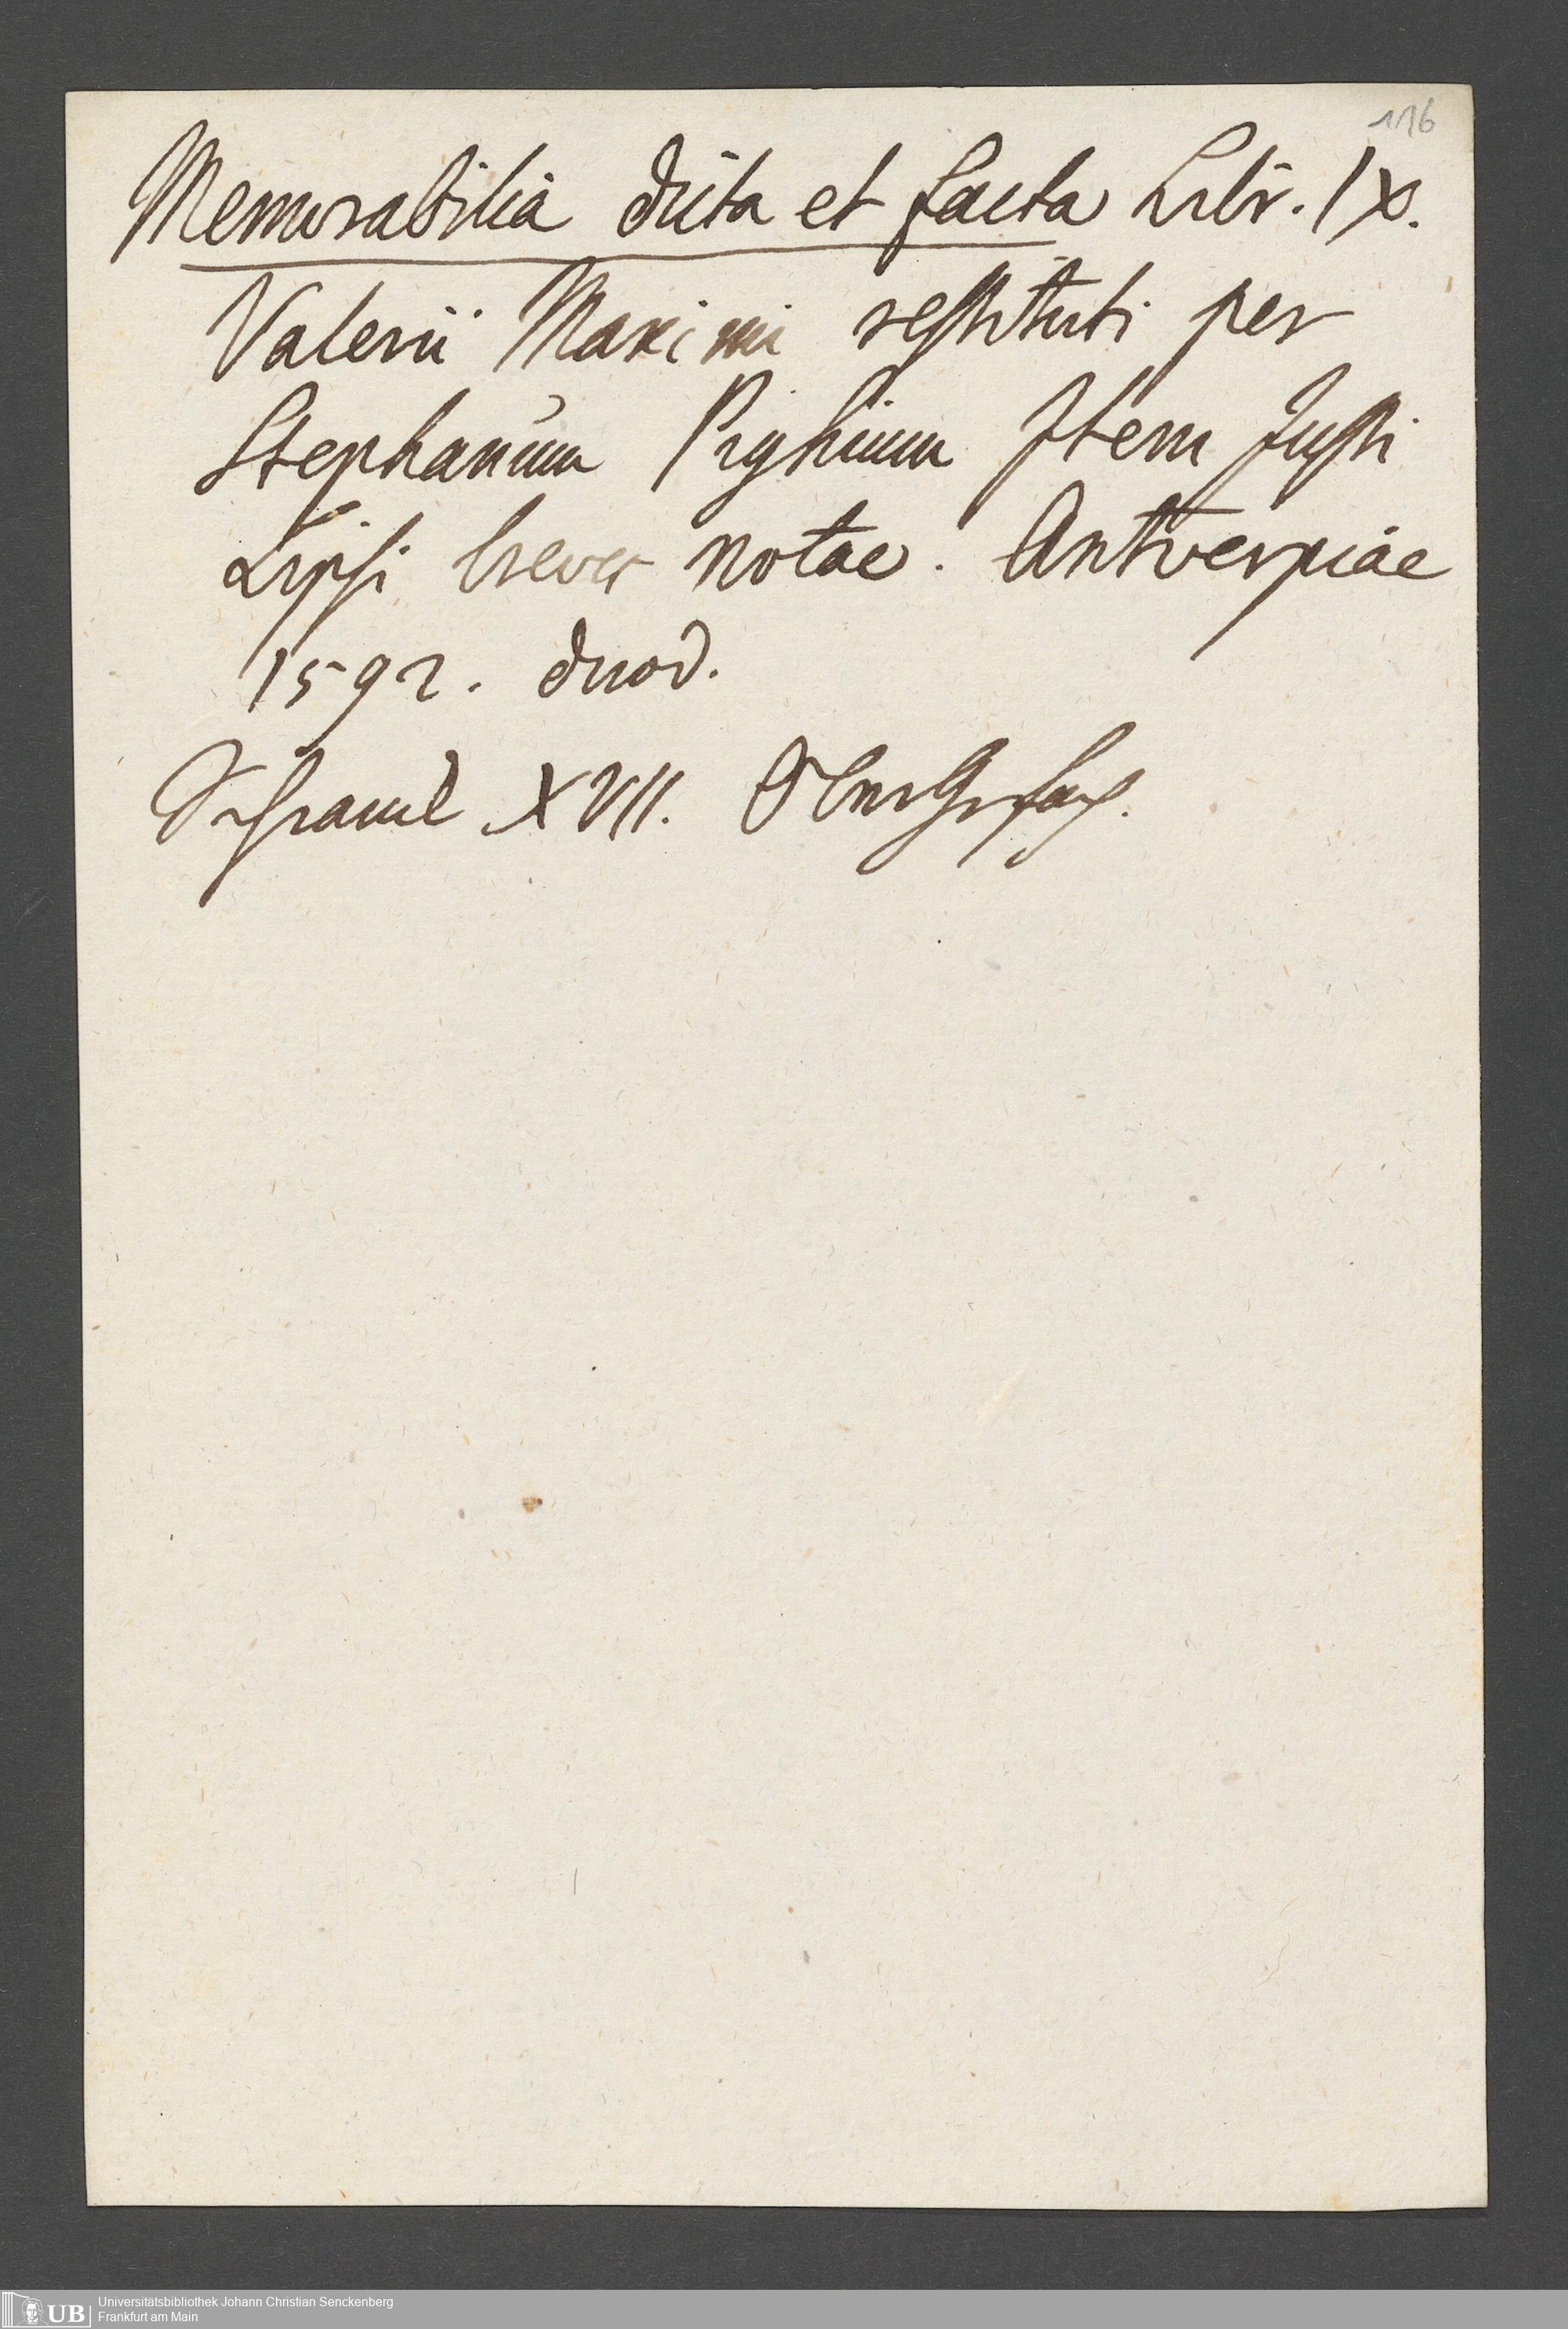 116
Memorabilia dicta et facta Libr. IX.
Valerii Maximi restituti per
Stephanum Pighium Item Justi
Lipsi breves notae. Antverpiae
1592. duod.
Schrank XVII.
UB Universitätsbibliothek Johann Christian Senckenberg
Frankfurt am Main